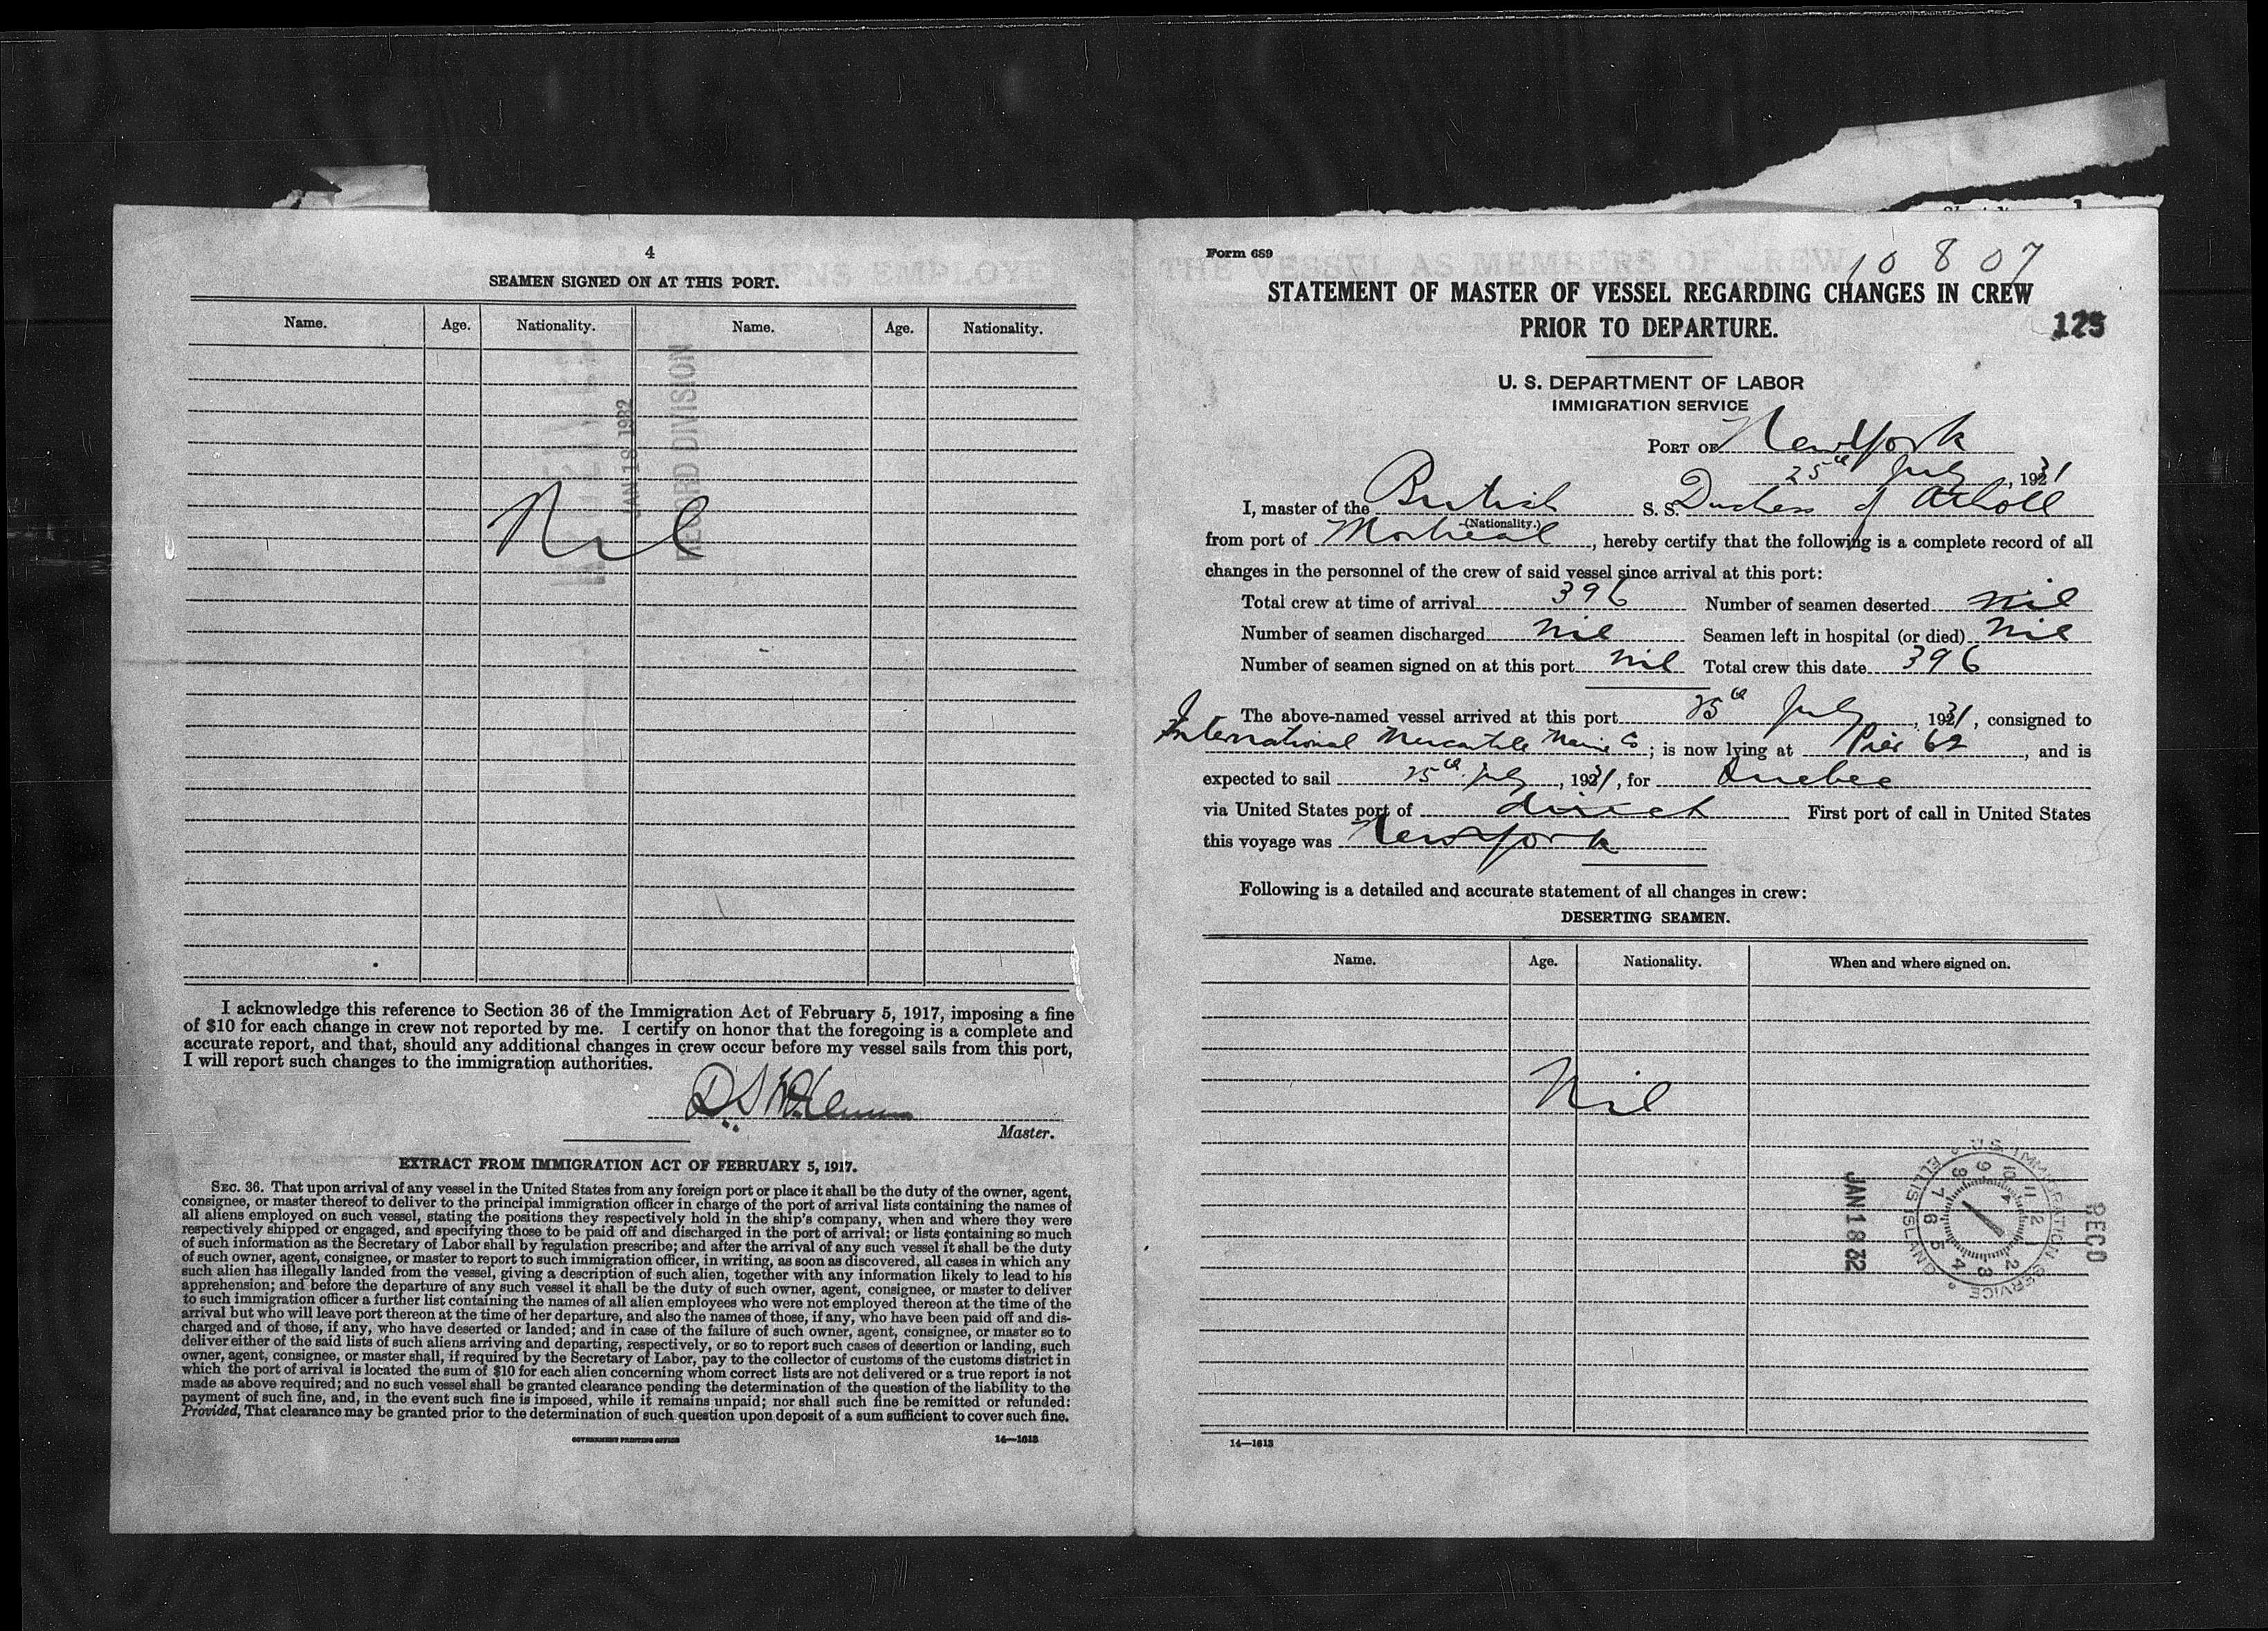 4
SEAMEN SIGNED ON AT THIS PORT.
Name. Age. Nationality. Name. Age. Nationality.
JAN 18 1932
RECORD DIVISION
Nil
I acknowledge this reference to Section 36 of the Immigration Act of February 5, 1917, imposing a fine
of $10 for each change in crew not reported by me. I certify on honor that the foregoing is a complete and
accurate report, and that, should any additional changes in crew occur before my vessel sails from this port,
I will report such changes to the immigration authorities.
Master.
EXTRACT FROM IMMIGRATION ACT OF FEBRUARY 5, 1917.
SEC. 36. That upon arrival of any vessel in the United States from any foreign port or place it shall be the duty of the owner, agent,
consignee, or master thereof to deliver to the principal immigration officer in charge of the port of arrival lists containing the names of
all aliens employed on such vessel, stating the positions they respectively hold in the ship's company, when and where they were
respectively shipped or engaged, and specifying those to be paid off and discharged in the port of arrival; or lists containing so much
of such information as the Secretary of Labor shall by regulation prescribe; and after the arrival of any such vessel it shall be the duty
of such owner, agent, consignee, or master to report to such immigration officer, in writing, as soon as discovered, all cases in which any
such alien has illegally landed from the vessel, giving a description of such alien, together with any information likely to lead to his
apprehension; and before the departure of any such vessel it shall be the duty of such owner, agent, consignee, or master to deliver
to such immigration officer a further list containing the names of all alien employees who were not employed thereon at the time of the
arrival but who will leave port thereon at the time of her departure, and also the names of those, if any, who have been paid off and dis-
charged and of those, if any, who have deserted or landed; and in case of the failure of such owner, agent, consignee, or master so to
deliver either of the said lists of such aliens arriving and departing, respectively, or so to report such cases of desertion or landing, such
owner, agent, consignee, or master shall, if required by the Secretary of Labor, pay to the collector of customs of the customs district in
which the port of arrival is located the sum of $10 for each alien concerning whom correct lists are not delivered or a true report is not
made as above required; and no such vessel shall be granted clearance pending the determination of the question of the liability to the
payment of such fine, and, in the event such fine is imposed, while it remains unpaid; nor shall such fine be remitted or refunded:
Provided, That clearance may be granted prior to the determination of such question upon deposit of a sum sufficient to cover such fine.
GOVERNMENT PRINTING OFFICE 14—1613
Form 689
10807
STATEMENT OF MASTER OF VESSEL REGARDING CHANGES IN CREW
PRIOR TO DEPARTURE.
125
U. S. DEPARTMENT OF LABOR
IMMIGRATION SERVICE
PORT OF New York
25th July, 1931
I, master of the British S. S. Duchess of Atholl
(Nationality.)
from port of Montreal, hereby certify that the following is a complete record of all
changes in the personnel of the crew of said vessel since arrival at this port:
Total crew at time of arrival 396 Number of seamen deserted nil
Number of seamen discharged nil Seamen left in hospital (or died) nil
Number of seamen signed on at this port nil Total crew this date 396
The above-named vessel arrived at this port 25th July, 1931, consigned to
International Mercantile Marine Co; is now lying at Pier 62, and is
expected to sail 25th July, 1931, for Quebec
via United States port of direct First port of call in United States
this voyage was New York
Following is a detailed and accurate statement of all changes in crew:
DESERTING SEAMEN.
Name. Age. Nationality. When and where signed on.
Nil
U.S. IMMIGRATION SERVICE ELLIS ISLAND
1 2 3 4 5 6 7 8 9 10 11 12
JAN 18 32
RECD
14—1613